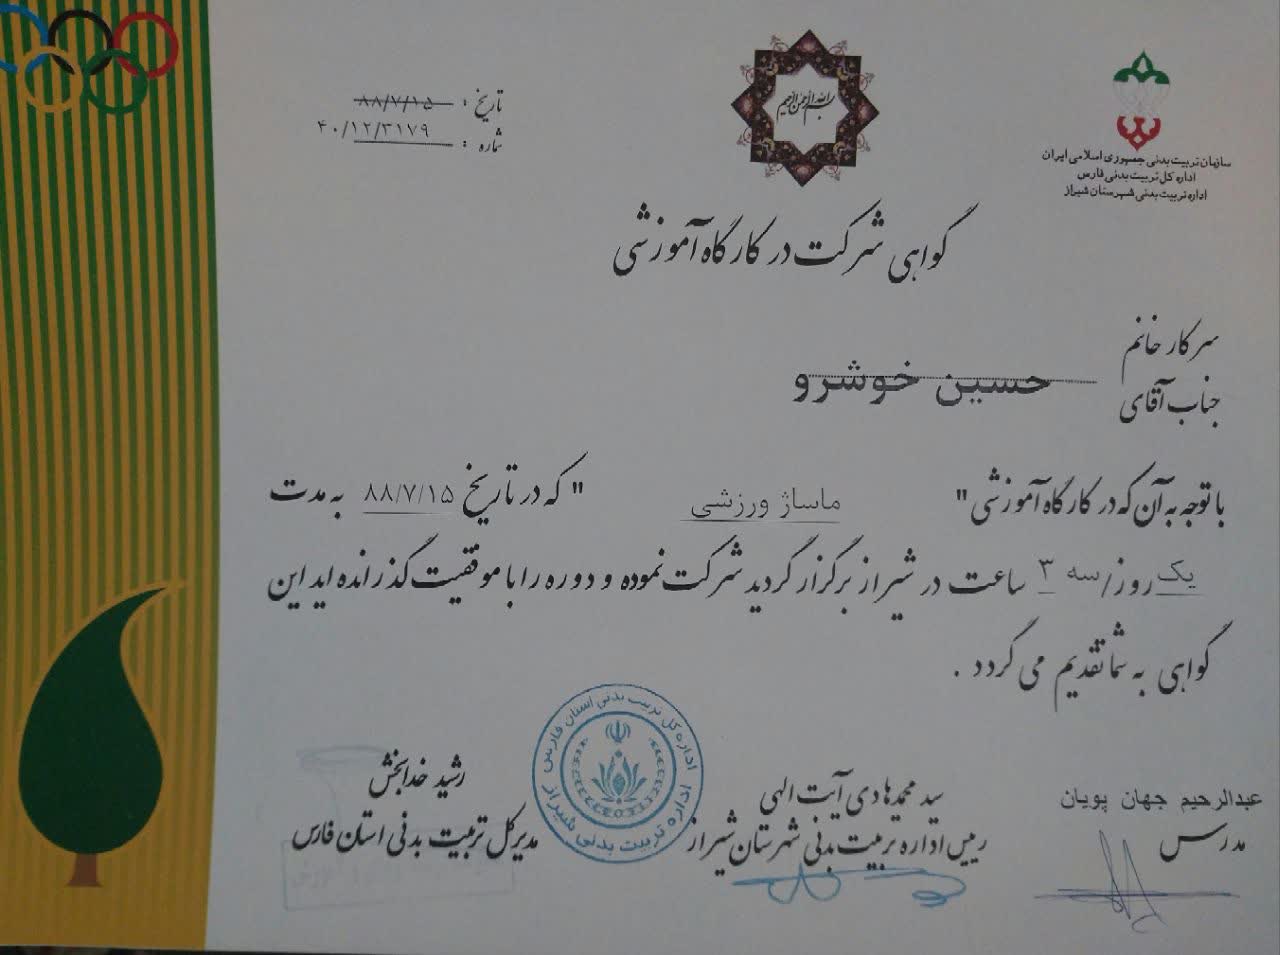 بسم الله الرحمن الرحیم
سازمان تربیت بدنی جمهوری اسلامی ایران
اداره کل تربیت بدنی فارس
اداره تربیت بدنی شهرستان شیراز
تاریخ : ۸۸/۷/۱۵
شماره : ۴۰/۱۲/۳۱۷۹
گواهی شرکت در کارگاه آموزشی
سرکار خانم
جناب آقای
حسین خوشرو
با توجه به آن که در کارگاه آموزشی " ماساژ ورزشی " که در تاریخ ۸۸/۷/۱۵ به مدت
یک روز/سه ۳ ساعت در شیراز برگزار گردید شرکت نموده و دوره را با موفقیت گذرانده اید این
گواهی به شما تقدیم می گردد .
عبدالرحیم جهان پویان
مدرس
سید محمدهادی آیت الهی
رییس اداره تربیت بدنی شهرستان شیراز
رشید خدابخش
مدیرکل تربیت بدنی استان فارس
اداره کل تربیت بدنی استان فارس
اداره تربیت بدنی شیراز